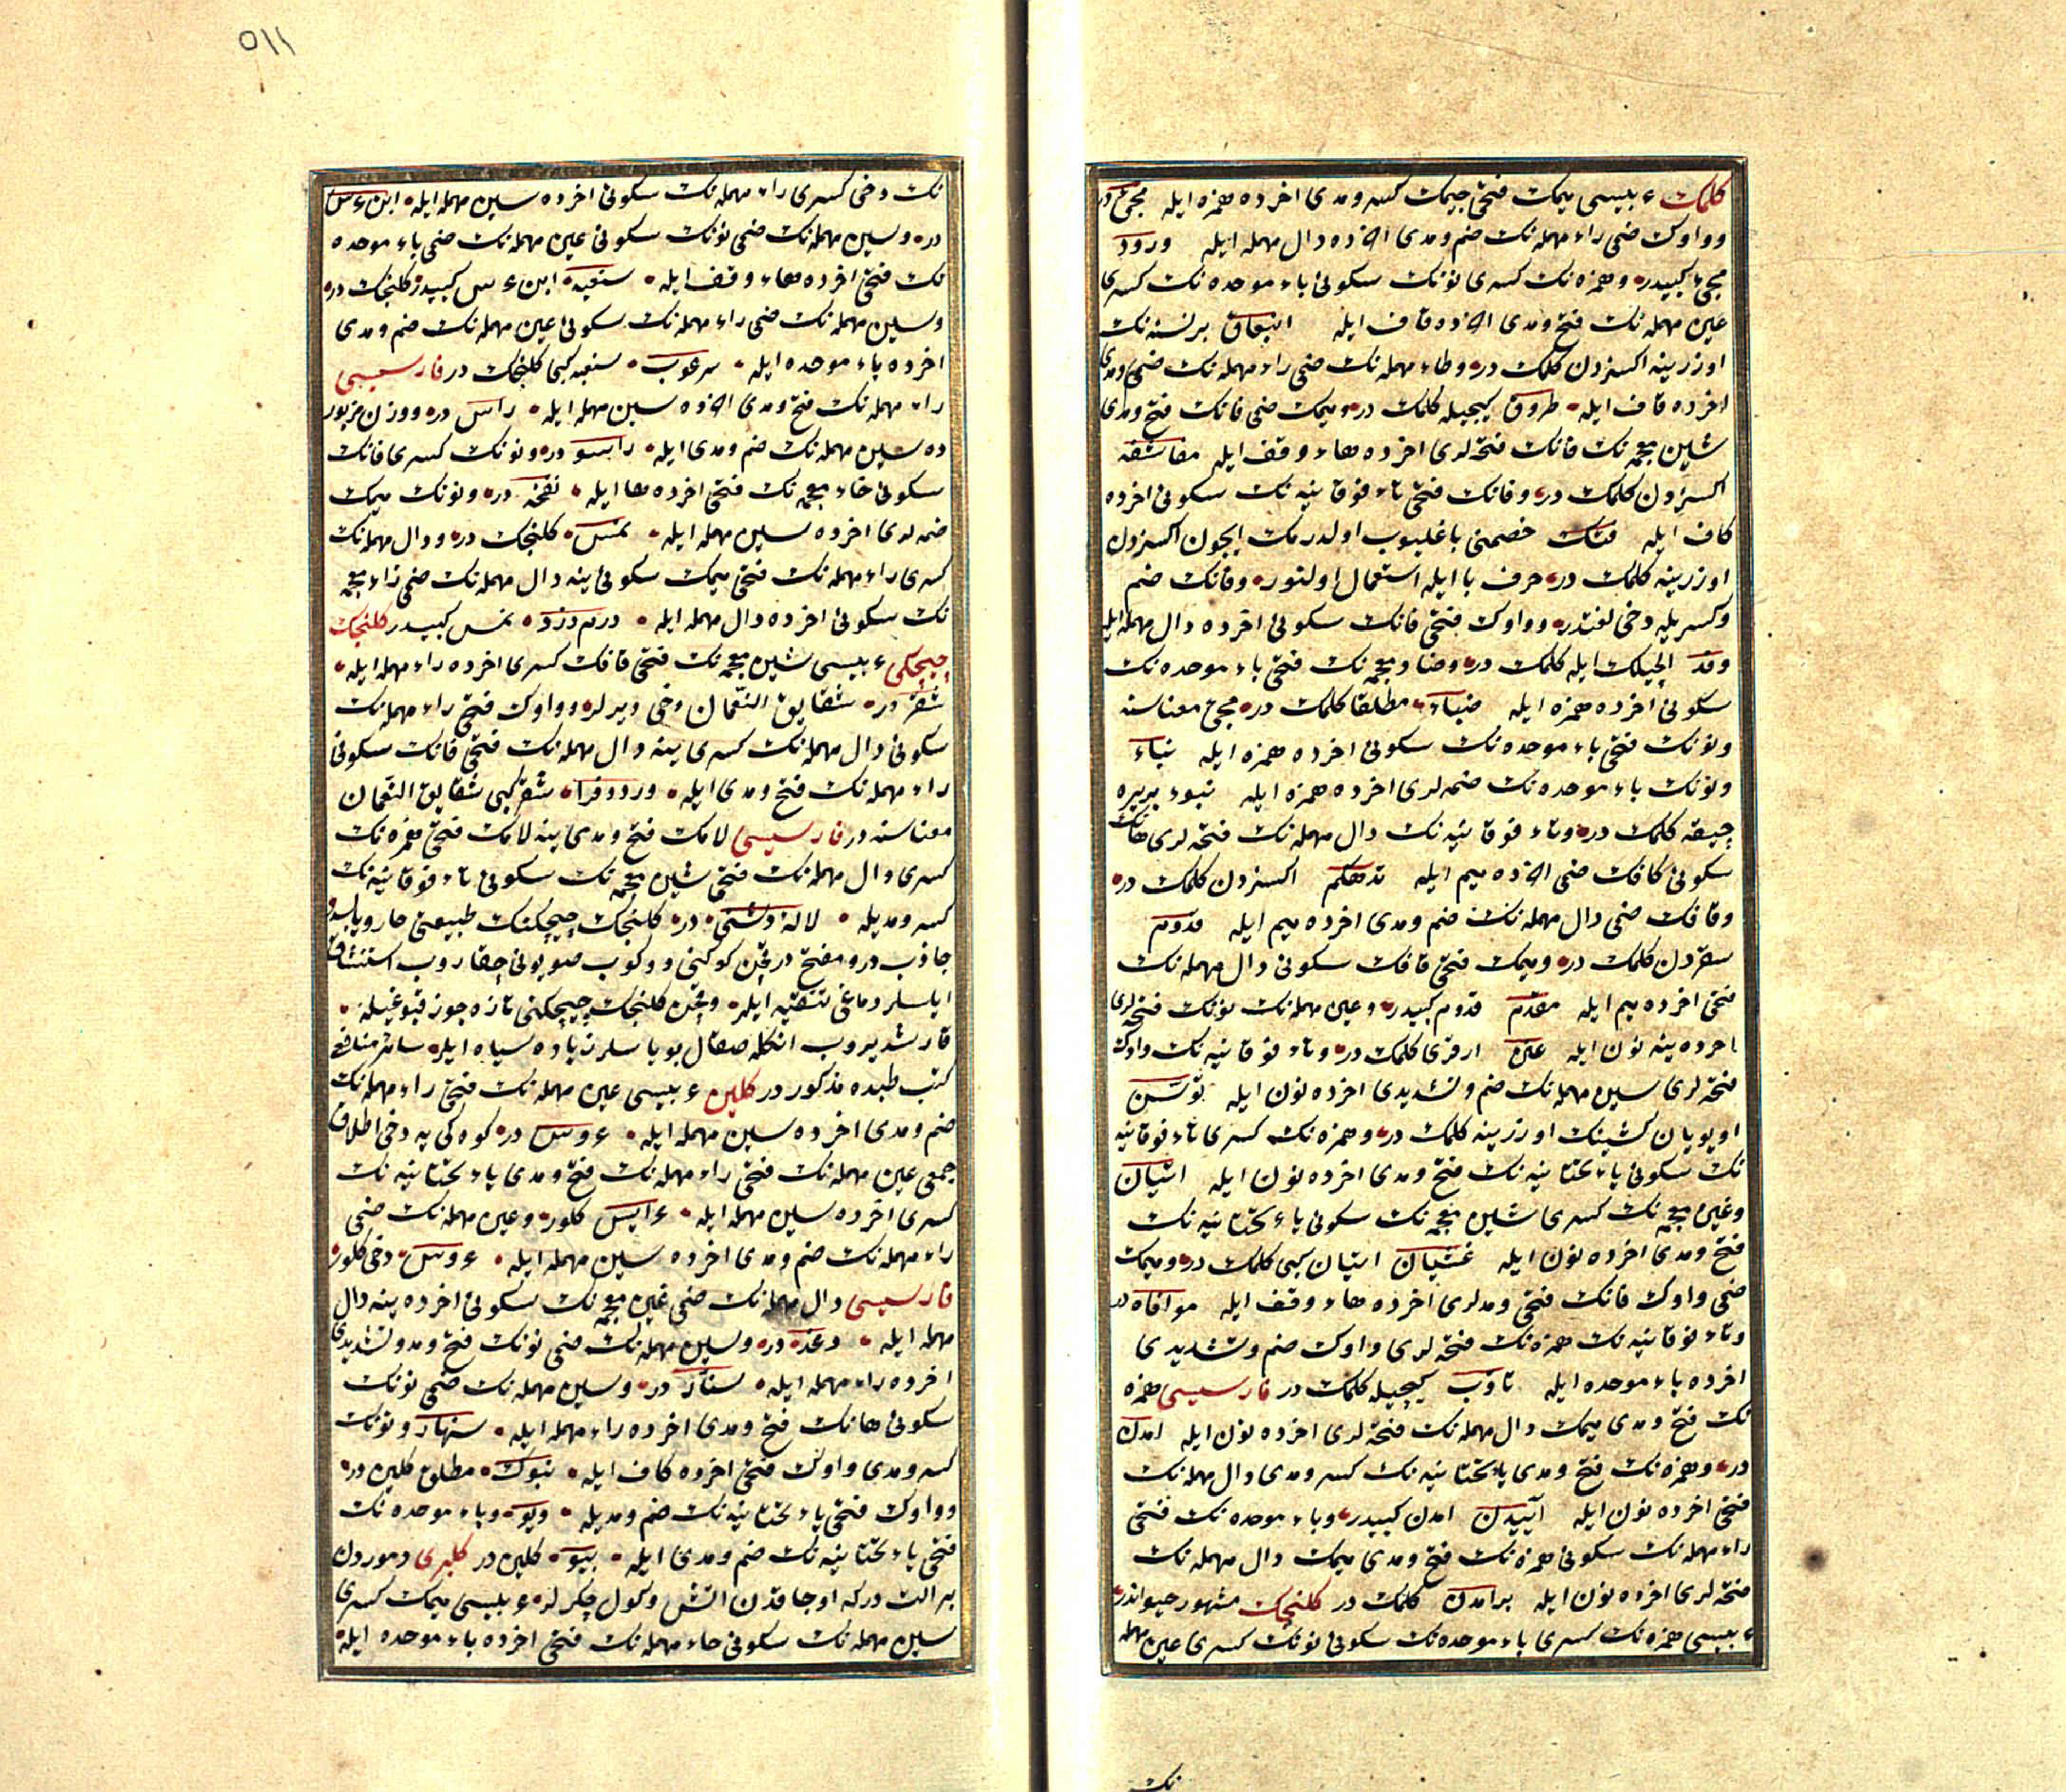 كلمك عربیسی میمك فتحی جیمك كسر و مدی اخرده همزه ایله مجیء در
و واوك ضمی راء مهمله نك ضم و مدی اخرده دال مهمله ایله ورود
مجیء كبیدر و همزه نك كسری نونك سكونی باء موحده نك كسری
عین مهمله نك فتح و مدی اخرده قاف ایله انبعاق بر نسنه نك
اوزرینه اكسزدن كلمك در و طاء مهمله نك ضمی راء مهمله نك ضم و مدی
اخرده قاف ایله طروق كیجیله كلمك در و میمك ضمی فانك فتح و مدی
شین معجمه نك فانك فتحه لری اخرده هاء وقف ایله مفاشفه
اكسزدن كلمك در و فانك فتحی تاء فوقانیه نك سكونی اخرده
كاف ایله فتك خصمنی باغلیوب اولدرمك ایچون اكسزدن
اوزرینه كلمك در حرف با ایله استعمال اولنور و فانك ضم
و كسریله دخی لغتدر و واوك فتحی فانك سكونی اخرده دال مهمله ایله
وفد ایلچیلك ایله كلمك در و ضاد معجمه نك فتحی باء موحده نك
سكونی اخرده همزه ایله ضباء مطلقا كلمك در مجیء معناسنه
و نونك فتحی باء موحده نك سكونی اخرده همزه ایله نباء
و نونك باء موحده نك ضمه لری اخرده همزه ایله نبوء بریره
چیقه كلمك در و تاء فوقانیه نك دال مهمله نك فتحه لری هانك
سكونی كافك ضمی اخرده میم ایله تدهكم اكسزدن كلمك در
و قافك ضمی دال مهمله نك ضم و مدی اخرده میم ایله قدوم
سفردن كلمك در و میمك فتحی قافك سكونی دال مهمله نك
فتحی اخرده میم ایله مقدم قدوم كبیدر و عین مهمله نك نونك فتحه لری
اخرده ینه نون ایله عنن ارقری كلمك در و تاء فوقانیه نك واوك
فتحه لری سین مهمله نك ضم و تشدیدی اخرده نون ایله توسن
اویویان كشینك اوزرینه كلمك در و همزه نك كسری تاء فوقانیه
نك سكونی یاء تحتانیه نك فتح و مدی اخرده نون ایله اتیان
و غین معجمه نك كسری شین معجمه نك سكونی یاء تحتانیه نك
فتح و مدی اخرده نون ایله غشیان اتیان كبی كلمك در و میمك
ضمی واوك فانك فتحی و مدلری اخرده هاء وقف ایله موافاه در
و تاء فوقانیه نك همزه نك فتحه لری واوك ضم و تشدیدی
اخرده باء موحده ایله تاوب كیجیله كلمك در فارسیسی همزه
نك فتح و مدی میمك دال مهمله نك فتحه لری اخرده نون ایله امدن
در و همزه نك فتح و مدی یاء تحتانیه نك كسر و مدی دال مهمله نك
فتحی اخرده نون ایله آییدن امدن كبیدر و باء موحده نك فتحی
راء مهمله نك سكونی همزه نك فتح و مدی میمك دال مهمله نك
فتحه لری اخرده نون ایله برامدن كلمك در كلنجك مشهور حیواندر
عربیسی همزه نك كسری باء موحده نك سكونی نونك كسری عین مهمله
نك
٥١١
نك دخی كسری راء مهمله نك سكونی اخرده سین مهمله ایله ابن عرس
در و سین مهمله نك ضمی نونك سكونی عین مهمله نك ضمی باء موحده
نك فتحی اخرده هاء وقف ایله سنعبه ابن عرس كبیدر كلنجك در
و سین مهمله نك ضمی راء مهمله نك سكونی عین مهمله نك ضم و مدی
اخرده باء موحده ایله سرعوب سنعبه كبی كلنجك در فارسیسی
راء مهمله نك فتح و مدی اخرده سین مهمله ایله راس در و وزن مزبور
ده سین مهمله نك ضم و مدی ایله راسو در و نونك كسری فانك
سكونی خاء معجمه نك فتحی اخرده ها ایله نفخه در و نونك میمك
ضمه لری اخرده سین مهمله ایله نمس كلنجك در و دال مهمله نك
كسری راء مهمله نك فتحی میمك سكونی ینه دال مهمله نك ضمی زاء معجمه
نك سكونی اخرده دال مهمله ایله درم دزد نمس كبیدر كلنجك
چیچكی عربیسی شین معجمه نك فتحی قافك كسری اخرده راء مهمله ایله
شقر در شقایق النعمان دخی دیرلر و واوك فتحی راء مهمله نك
سكونی دال مهمله نك كسری ینه دال مهمله نك فتحی فانك سكونی
راء مهمله نك فتح و مدی ایله ورد دفرا شقر كبی شقایق النعمان
معناسنه در فارسیسی لامك فتح و مدی ینه لامك فتحی همزه نك
كسری دال مهمله نك فتحی شین معجمه نك سكونی تاء فوقانیه نك
كسر و مدیله لالۀ دشتی در كلنجك چیچكنك طبیعتی حار و یابسدر
جاذب در و مفتح در قچن كوكنی دوكوب صویونی چقاروب استنشاق
ایلسلر دماغی تنقیه ایلر و قچن كلنجك چیچكنی تازه جوز قبوغیله
قارشدیروب انكله صقال بویاسلر زیاده سیاه ایلر سائر منافعی
كتب طبده مذكور در كلین عربیسی عین مهمله نك فتحی راء مهمله نك
ضم و مدی اخرده سین مهمله ایله عروس در كوه كی یه دخی اطلاق
جمعی عین مهمله نك فتحی راء مهمله نك فتح و مدی یاء تحتانیه نك
كسری اخرده سین مهمله ایله عرایس كلور و عین مهمله نك ضمی
راء مهمله نك ضم و مدی اخرده سین مهمله ایله عروس دخی كلور
فارسیسی دال مهمله نك ضمی غین معجمه نك سكونی اخرده ینه دال
مهمله ایله دغد در و سین مهمله نك ضمی نونك فتح و مد و تشدیدی
اخرده راء مهمله ایله سنار در و سین مهمله نك ضمی نونك
سكونی هانك فتح و مدی اخرده راء مهمله ایله سنهار و نونك
كسر و مدی واوك فتحی اخرده كاف ایله نیوك مطلق كلین در
و واوك فتحی یاء تحتانیه نك ضم و مدیله ویو و باء موحده نك
فتحی یاء تحتانیه نك ضم و مدی ایله بیو كلین در كلبری دموردن
بر الت در كه اوجاقدن اتش و كول چكرلر عربیسی میمك كسری
سین مهمله نك سكونی حاء مهمله نك فتحی اخرده باء موحده ایله